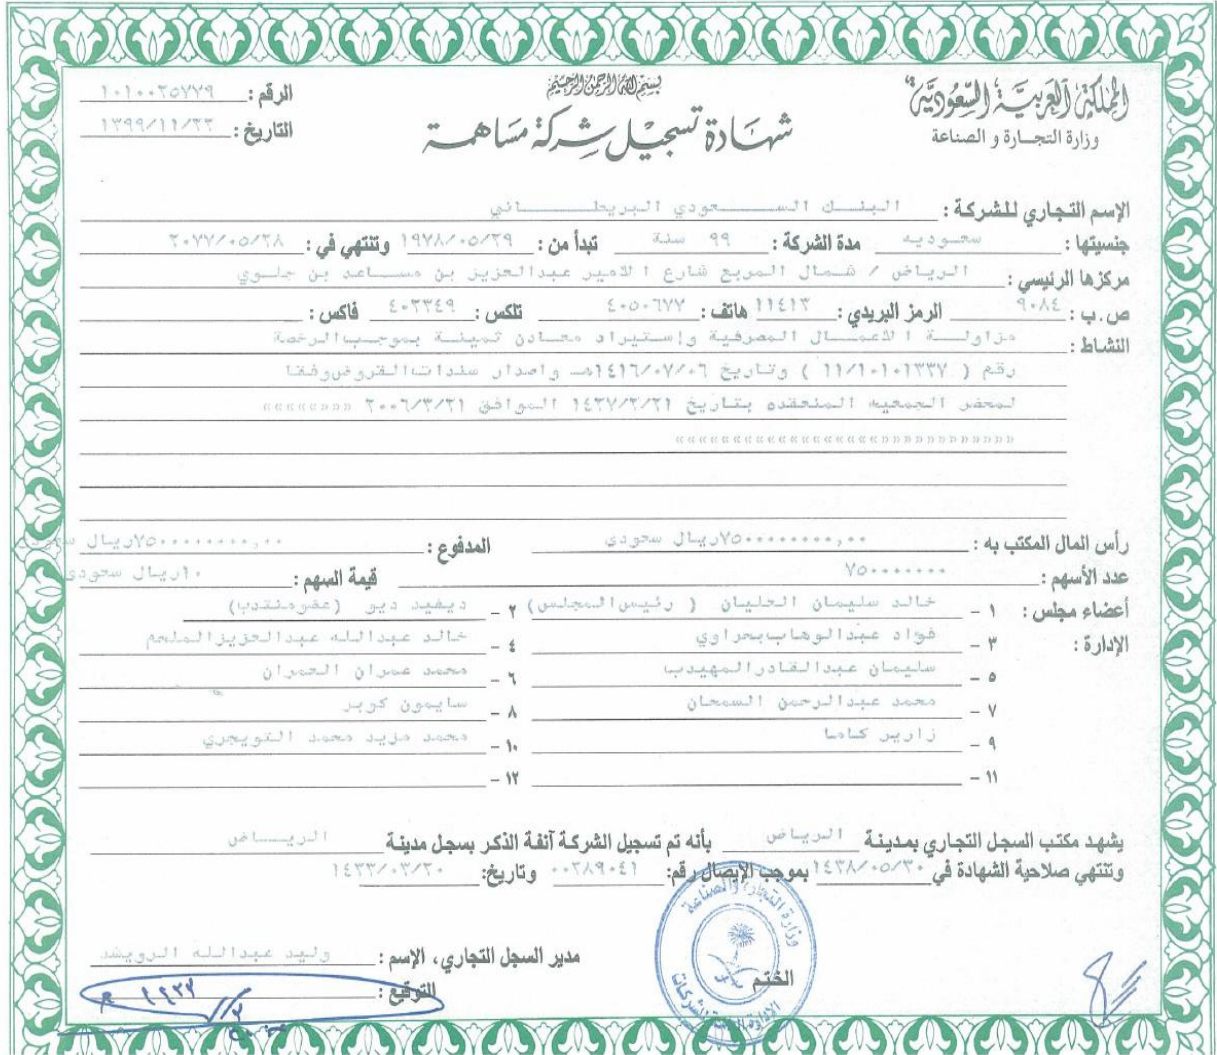 بسم الله الرحمن الرحيم
المملكة العربية السعودية
وزارة التجارة و الصناعة
شهادة تسجيل شركة مساهمة
الرقم : ١٠١٠٠٢٥٧٧٩
التاريخ : ١٣٩٩/١١/٢٣
الإسم التجاري للشركة : البنك السعودي البريطاني
جنسيتها : سعوديه مدة الشركة : ٩٩ سنة تبدأ من : ١٩٧٨/٠٥/٢٩ وتنتهي في : ٢٠٧٧/٠٥/٢٨
مركزها الرئيسي : الرياض / شمال المربع شارع الامير عبدالعزيز بن مساعد بن جلوي
ص.ب : ٩٠٨٤ الرمز البريدي : ١١٤١٣ هاتف : ٤٠٥٠٦٧٧ تلكس : ٤٠٢٣٤٩ فاكس :
النشاط : مزاولة الاعمال المصرفية وإستيراد معادن ثمينة بموجب الرخصة
رقم ( ١١/١٠١٠١٣٣٧ ) وتاريخ ١٤١٦/٠٧/٠٦هـ واصدار سندات القروض وفقا
لمحضر الجمعيه المنعقده بتاريخ ١٤٢٧/٢/٢١ الموافق ٢٠٠٦/٣/٢١
رأس المال المكتب به : ٧٥٠٠٠٠٠٠٠٠٠,٠٠ريال سعودى المدفوع : ٧٥٠٠٠٠٠٠٠٠٠,٠٠ريال
عدد الأسهم : ٧٥٠٠٠٠٠٠٠ قيمة السهم : ١٠ريال سعودى
أعضاء مجلس : ١ – خالد سليمان العليان ( رئيس المجلس) ٢ – ديفيد ديو (عضومنتدب)
الإدارة : ٣ – فؤاد عبدالوهاب بحراوي ٤ – خالد عبدالله عبدالعزيز الملحم
٥ – سليمان عبدالقادر المهيدب ٦ – محمد عمران العمران
٧ – محمد عبدالرحمن السمحان ٨ – سايمون كوبر
٩ – زارير كاما ١٠ – محمد مزيد محمد التويجري
١١ – ١٢ –
يشهد مكتب السجل التجاري بمدينة الرياض بأنه تم تسجيل الشركة آنفة الذكر بسجل مدينة الرياض
وتنتهي صلاحية الشهادة في ١٤٣٨/٠٥/٣٠ بموجب الإيصال رقم: ٠٠٢٨٩٠٤١ وتاريخ: ١٤٣٣/٠٣/٢٠
مدير السجل التجاري، الإسم : وليد عبدالله الرويشد
الختم
التوقيع :
وزارة التجارة والصناعة